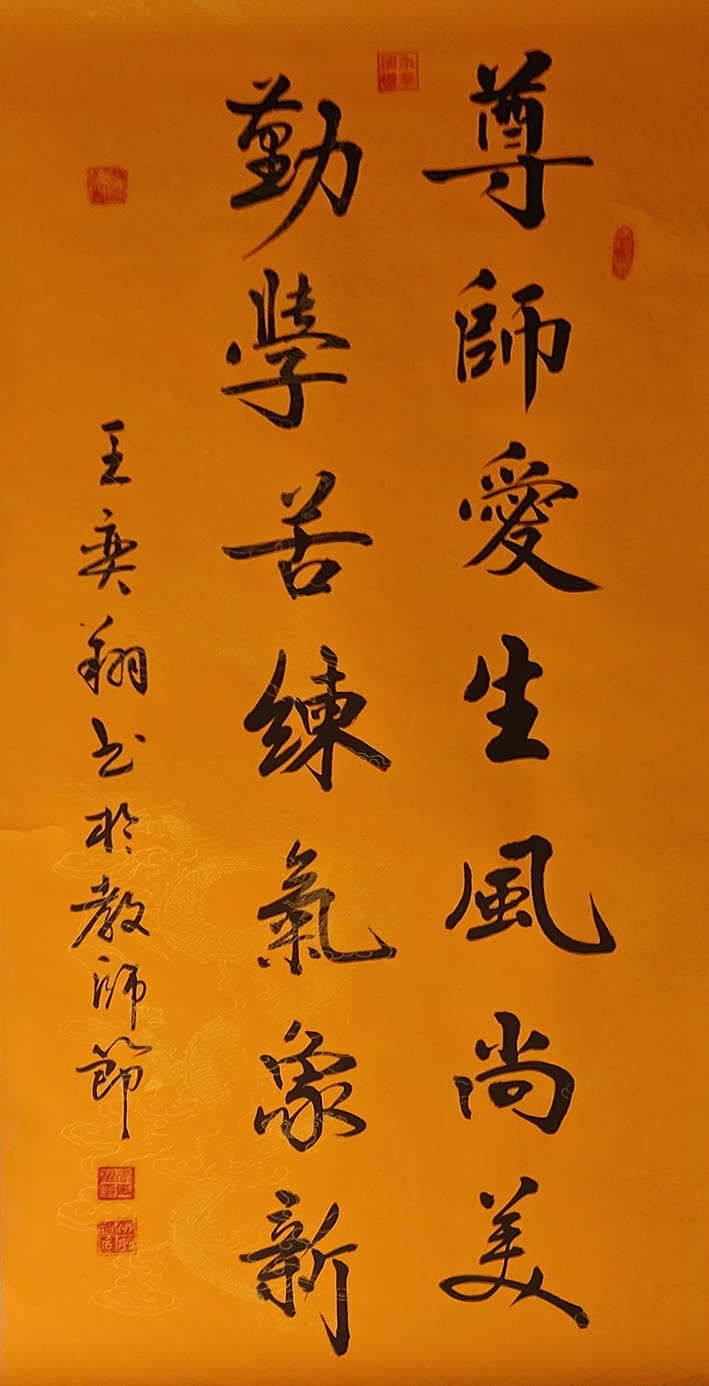 尊師愛生風尚美
勤學苦練氣象新
王奕翔书於教師節